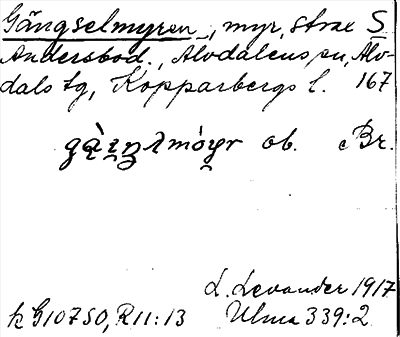 Gångselmyren, myr, strax S
Andersbod., Älvdalens sn, Älv-
dals tg, Kopparbergs l. 167
ob. Br.
L. Levander 1917
k G10750, R11:13 Ulma 339:2